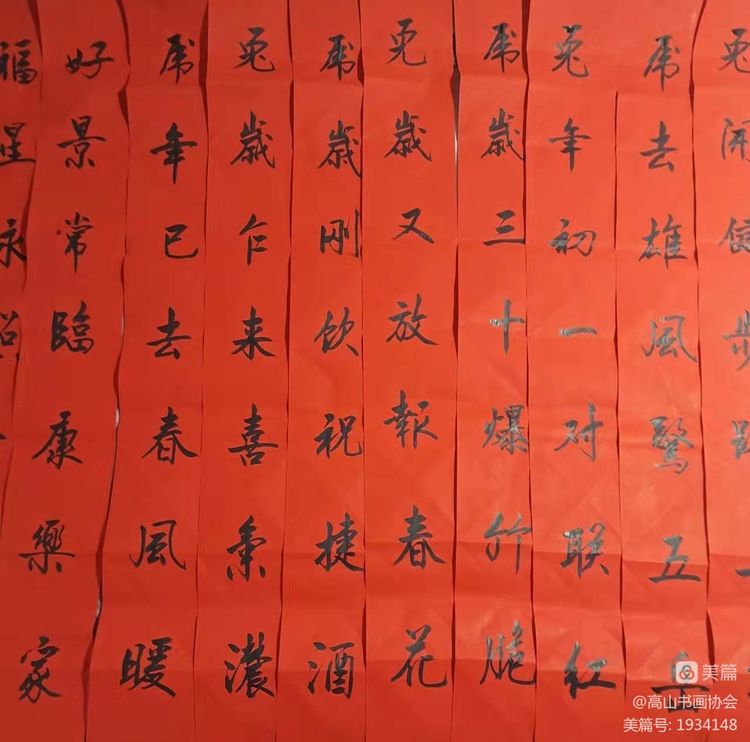 福星永照
好景常臨康樂家
虎年已去春風暖
兔歲乍来喜氣濃
虎歲剛飲祝捷酒
兔歲又放報春花
虎歲三十爆竹脆
兔年初一对联紅
虎去雄風驚五岳
兔健步
美篇
@高山书画协会
美篇号: 1934148